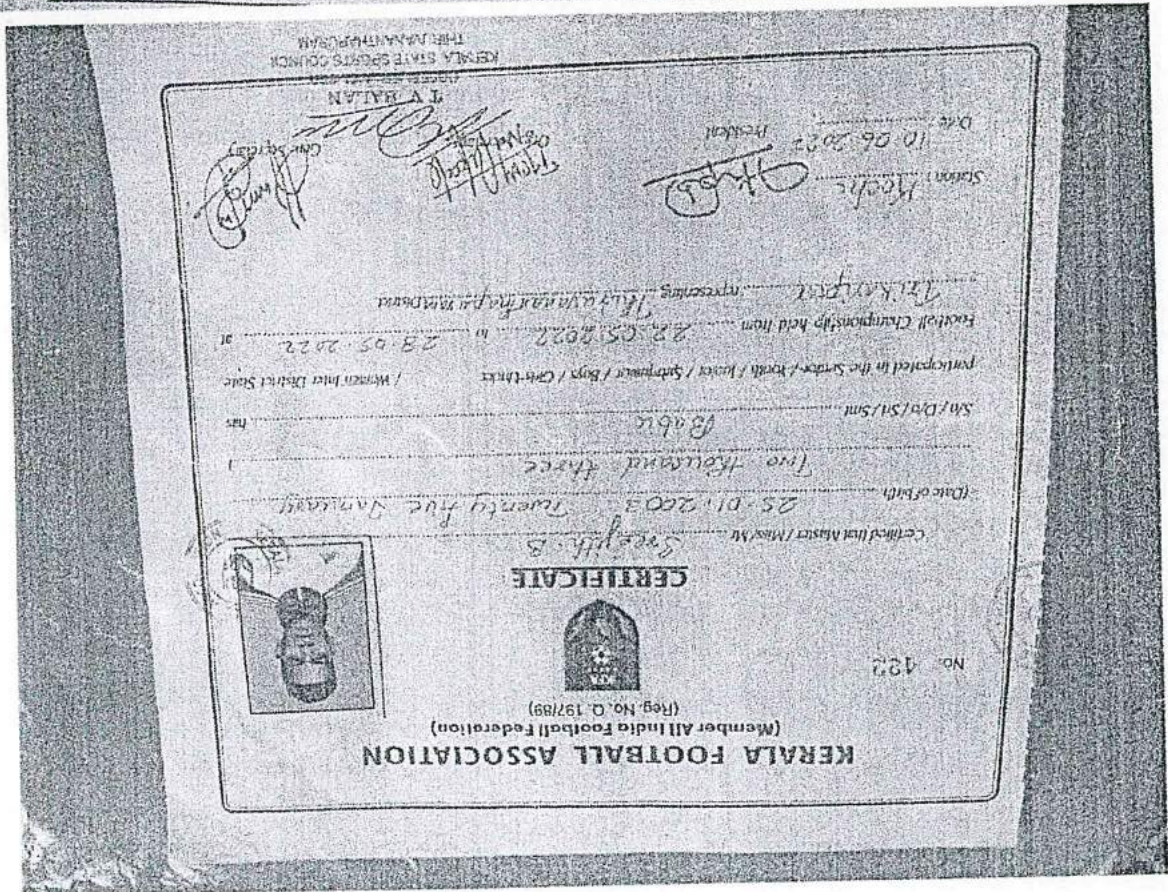 KERALA FOOTBALL ASSOCIATION
(Member All India Football Federation)
(Reg. No. Q. 197/89)
No. 122
KFA
CERTIFICATE
Certified that Master / Miss / Mr Sreejith . B
(Date of birth 25-01-2003 Twenty five January
Two thousand three )
S/o / D/o / Sri / Smt Babu has
participated in the Senior / Youth / Junior / Sub-junior / Boys / Girls / Women Inter District State
Football Championship held from 22.05.2022 to 28.05.2022 at
Trikaripur representing Thiruvananthapuram District
Station : Kochi
Date : 10.06.2022
President
Gen. Secretary
T V BALAN
KERALA STATE SPORTS COUNCIL
THIRUVANANTHAPURAM